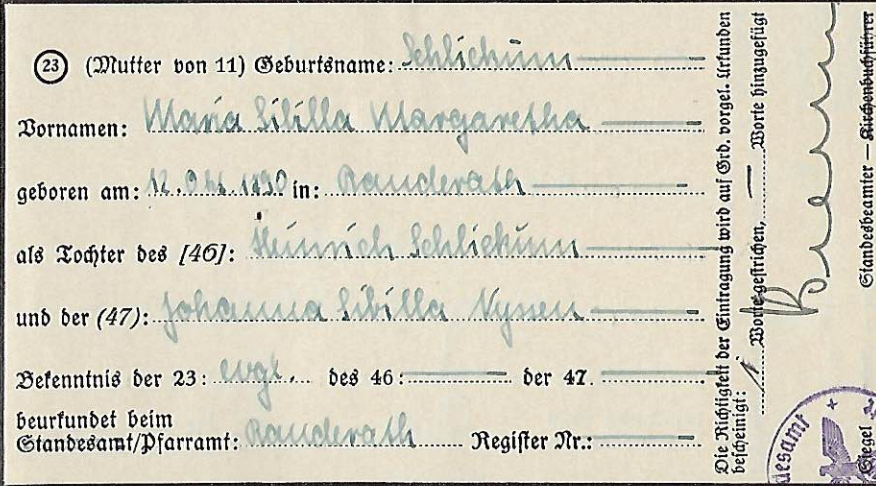 (23) (Mutter von 11) Geburtsname: Schlickum
Vornamen: Maria Sibilla Margaretha
geboren am: 12. Okt. in: Randerath
als Tochter des [46]: Heinrich Schlickum
und der (47): Johanna Sibilla Nyssen
Bekenntnis der 23: evgl. des 46: der 47.
beurkundet beim
Standesamt/Pfarramt: Randerath Register Nr.:
Die Richtigkeit der Eintragung wird auf Grd. vorgel. Urkunden
bescheinigt: 1 Worte gestrichen, — Worte hinzugefügt
Standesbeamter — Kirchenbuchführer
Siegel
desamt